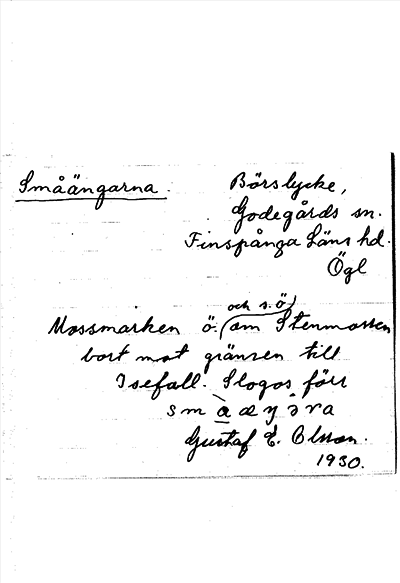 Småängarna.
Börslycke,
Godegårds sn.
Finspånga Läns hd.
Ögl
och s.ö.
Mossmarken ö. om Stenmossen
bort mot gränsen till
Isefall. Slogos förr
Gustaf E. Olsson.
1930.